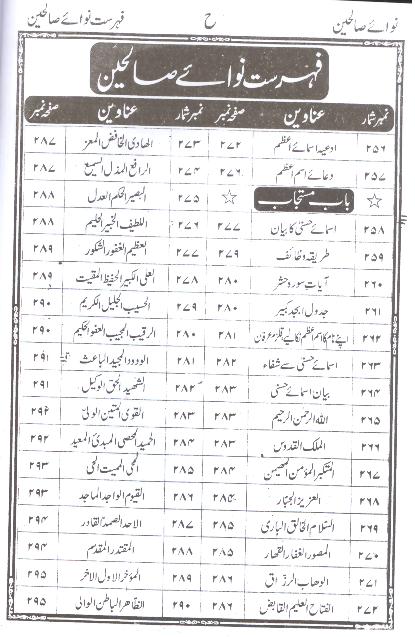 نوائے صالحین ح فہرست نوائے صالحین
فہرست نوائے صالحین
نمبر شمار عناوین صفحہ نمبر نمبر شمار عناوین صفحہ نمبر
۲۵۶ ادعیہ اسمائے اعظم ۲۷۲ ۲۷۳ الھادی الخافض المعز ۲۸۷
۲۵۷ دعائے اسم اعظم ۲۷۶ ۲۷۴ الرافع المذل السمیع ۲۸۷
☆ باب مستجاب ☆ ۲۷۵ البصیر الحکم العدل ۲۸۸
۲۵۸ اسمائے حسنیٰ کا بیان ۲۷۷ ۲۷۶ اللطیف الخبیر الحلیم ۲۸۸
۲۵۹ طریقہ وظائف ۲۷۹ ۲۷۷ العظیم الغفور الشکور ۲۸۹
۲۶۰ آیات سورہ حشر ۲۸۰ ۲۷۸ العلی الکبیر الحفیظ المقیت ۲۸۹
۲۶۱ جدول ابجد کبیر ۲۸۰ ۲۷۹ الحسیب الجلیل الکریم ۲۹۰
۲۶۲ اپنے نام کا اسم اعظم نکالیے قلزم عرفان ۲۸۱ ۲۸۰ الرقیب المجیب العفو الحکیم ۲۹۰
۲۶۳ اسمائے حسنیٰ سے شفاء ۲۸۲ ۲۸۱ الودود المجید الباعث ۲۹۱
۲۶۴ بیان اسمائے حسنیٰ ۲۸۳ ۲۸۲ الشھید الحق الوکیل ۲۹۱
۲۶۵ اللہ الرحمن الرحیم ۲۸۳ ۲۸۳ القوی المتین الولی ۲۹۲
۲۶۶ الملک القدوس ۲۸۳ ۲۸۴ الحمید المحصی المبدئ المعید ۲۹۲
۲۶۷ المتکبر المؤمن المھیمن ۲۸۴ ۲۸۵ المحی الممیت الحی ۲۹۳
۲۶۸ العزیز الجبار ۲۸۴ ۲۸۶ القیوم الواجد الماجد ۲۹۳
۲۶۹ السلام الخالق الباری ۲۸۵ ۲۸۷ الاحد الصمد القادر ۲۹۴
۲۷۰ المصور الغفار القھار ۲۸۵ ۲۸۸ المقتدر المقدم ۲۹۴
۲۷۱ الوھاب الرزاق ۲۸۶ ۲۸۹ المؤخر الاول الاخر ۲۹۵
۲۷۲ الفتاح العلیم القابض ۲۸۶ ۲۹۰ الظاھر الباطن الوالی ۲۹۵